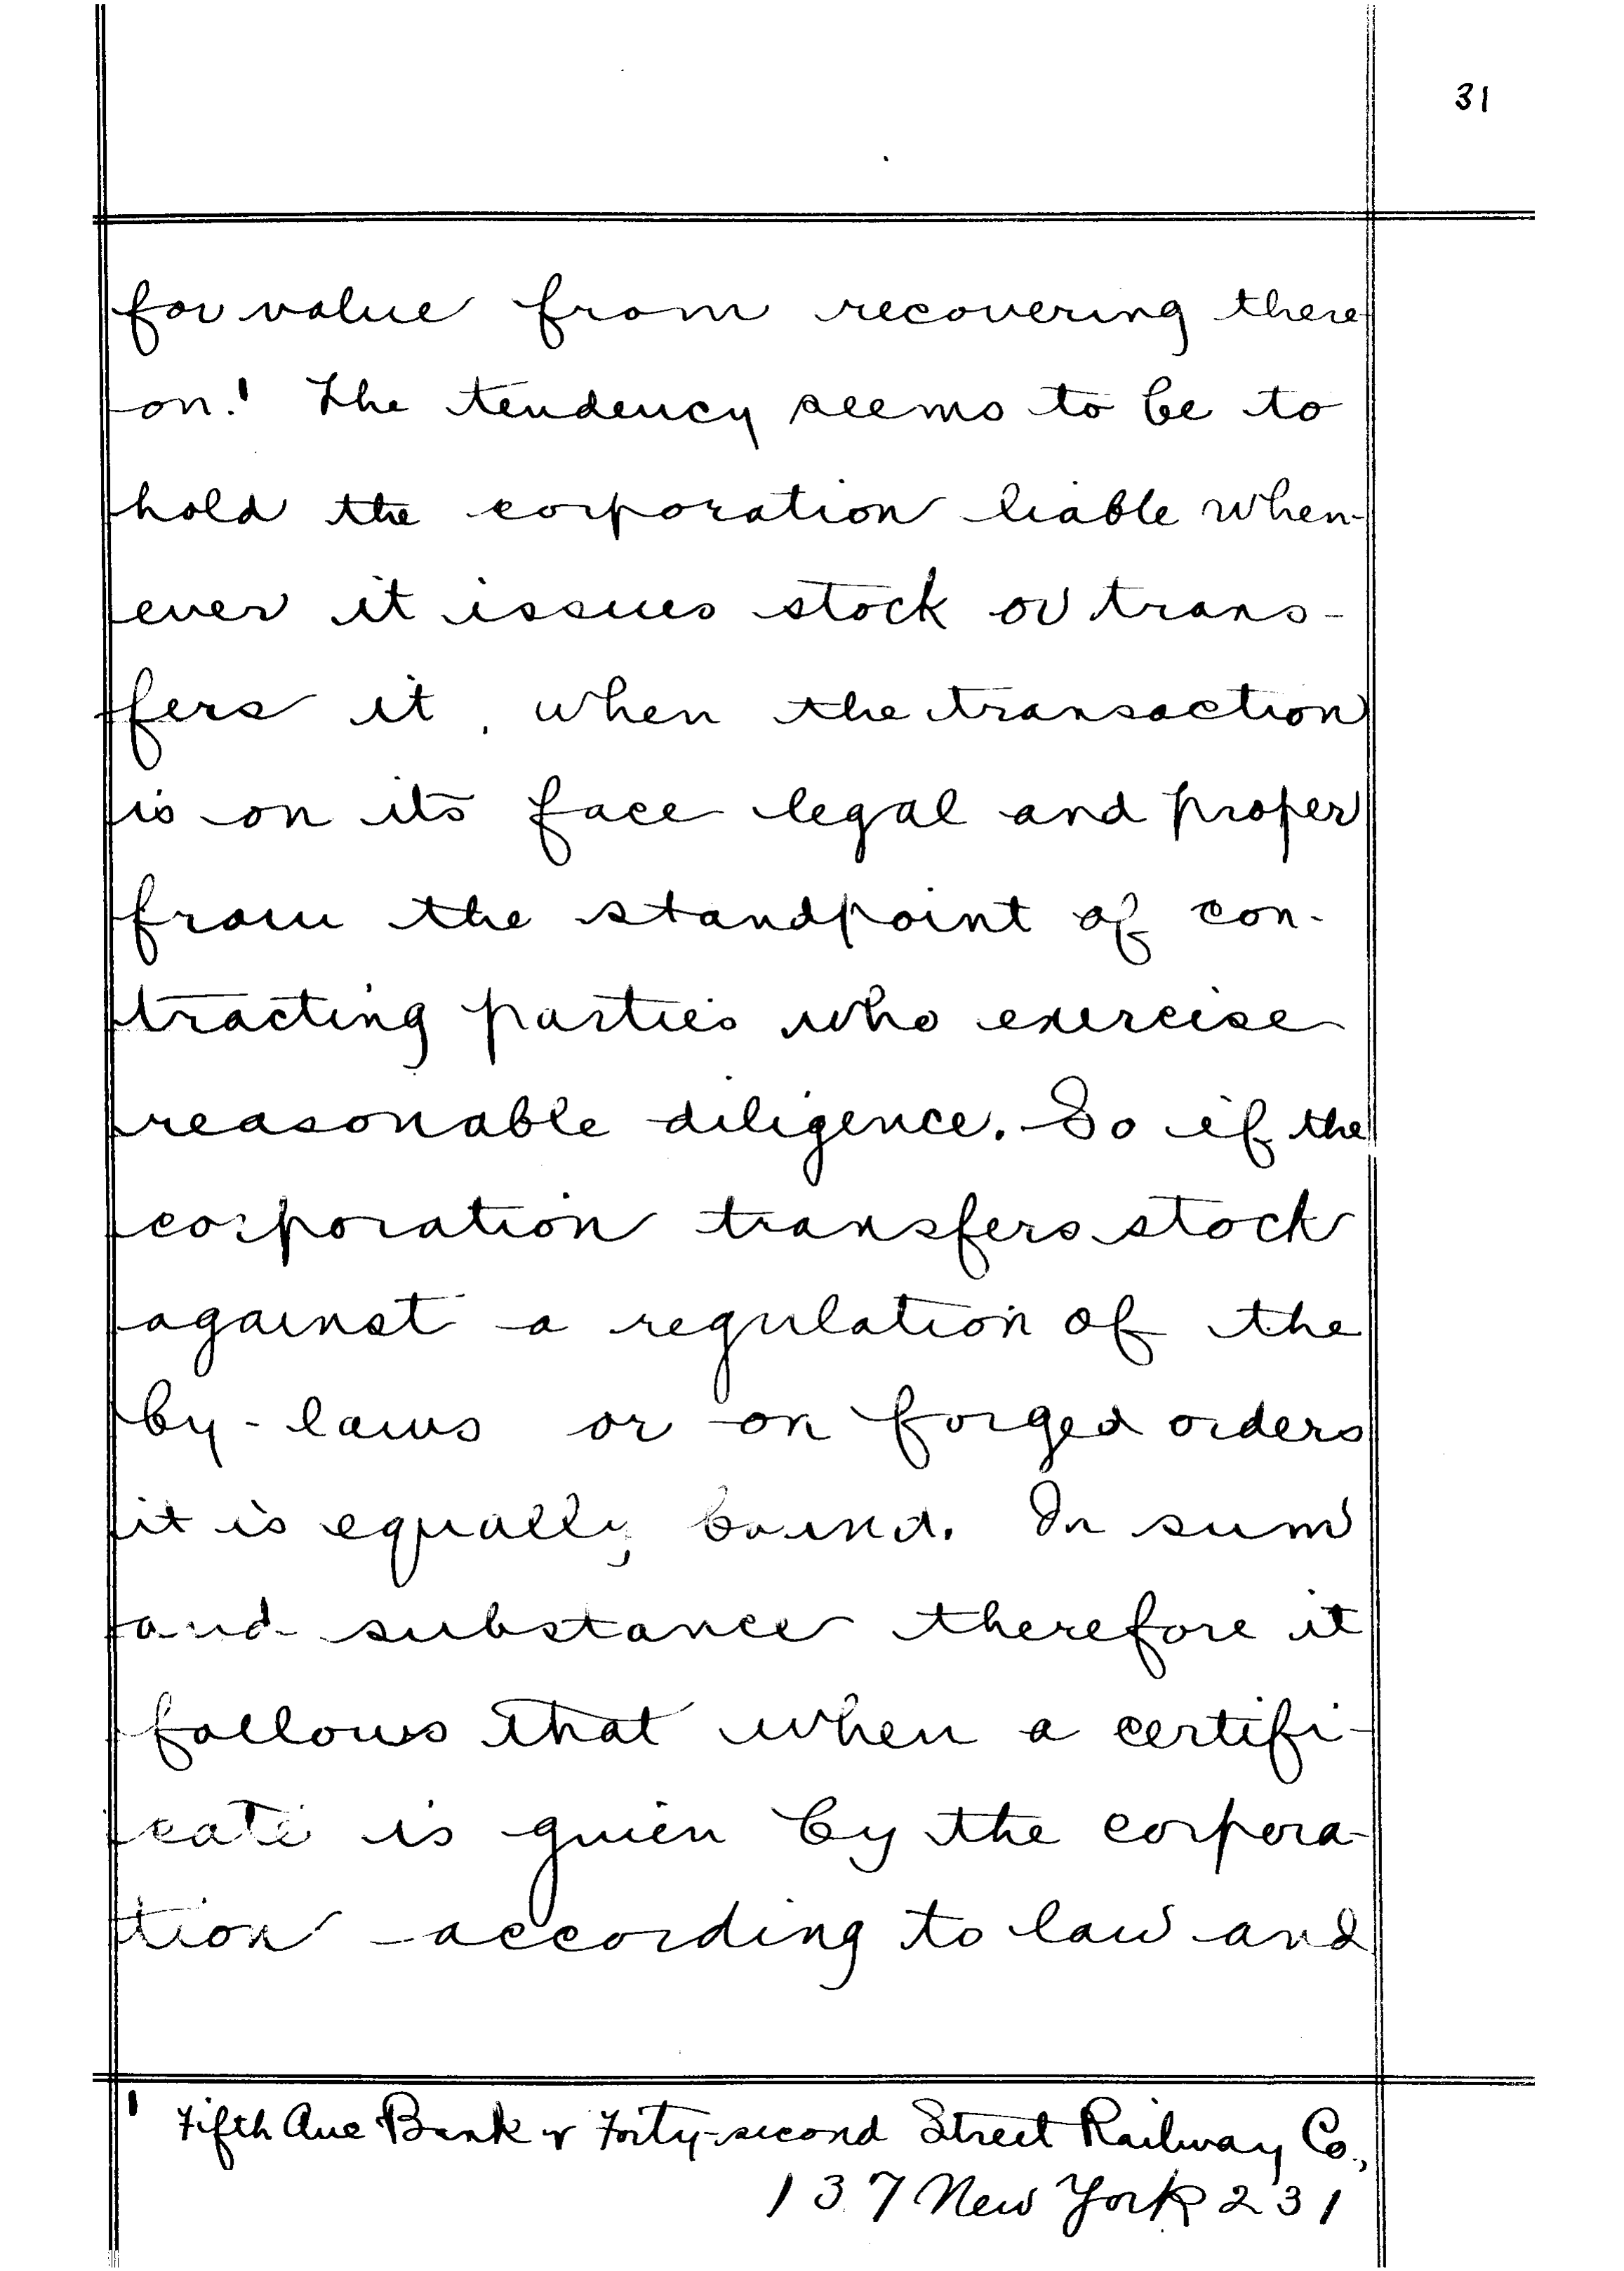 31
for value from recovering there
on.¹ The tendency seems to be to
hold the corporation liable when-
ever it issues stock or trans-
fers it, when the transaction
is on its face legal and proper
from the standpoint of con-
tracting parties who exercise
reasonable diligence. So if the
corporation transfers stock
against a regulation of the
by-laws or on forged orders
it is equally bound. In sum
and substance therefore it
follows that when a certifi-
cate is given by the corpora-
tion according to law and
¹ Fifth Ave Bank v Forty-second Street Railway Co.,
137 New York 231